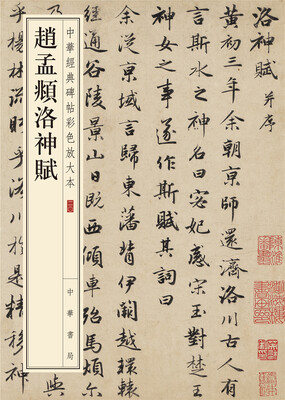 洛神賦 并序
黄初三年余朝京師還濟洛川古人有
言斯水之神名曰宓妃感宋玉對楚王
神女之事遂作斯賦其詞曰
余從京域言歸東藩背伊闕越轘轅
經通谷陵景山日既西傾車殆馬煩尔
中華經典碑帖彩色放大本
趙孟頫洛神賦
中華書局
與
乎楊林流眄乎洛川於是精移神